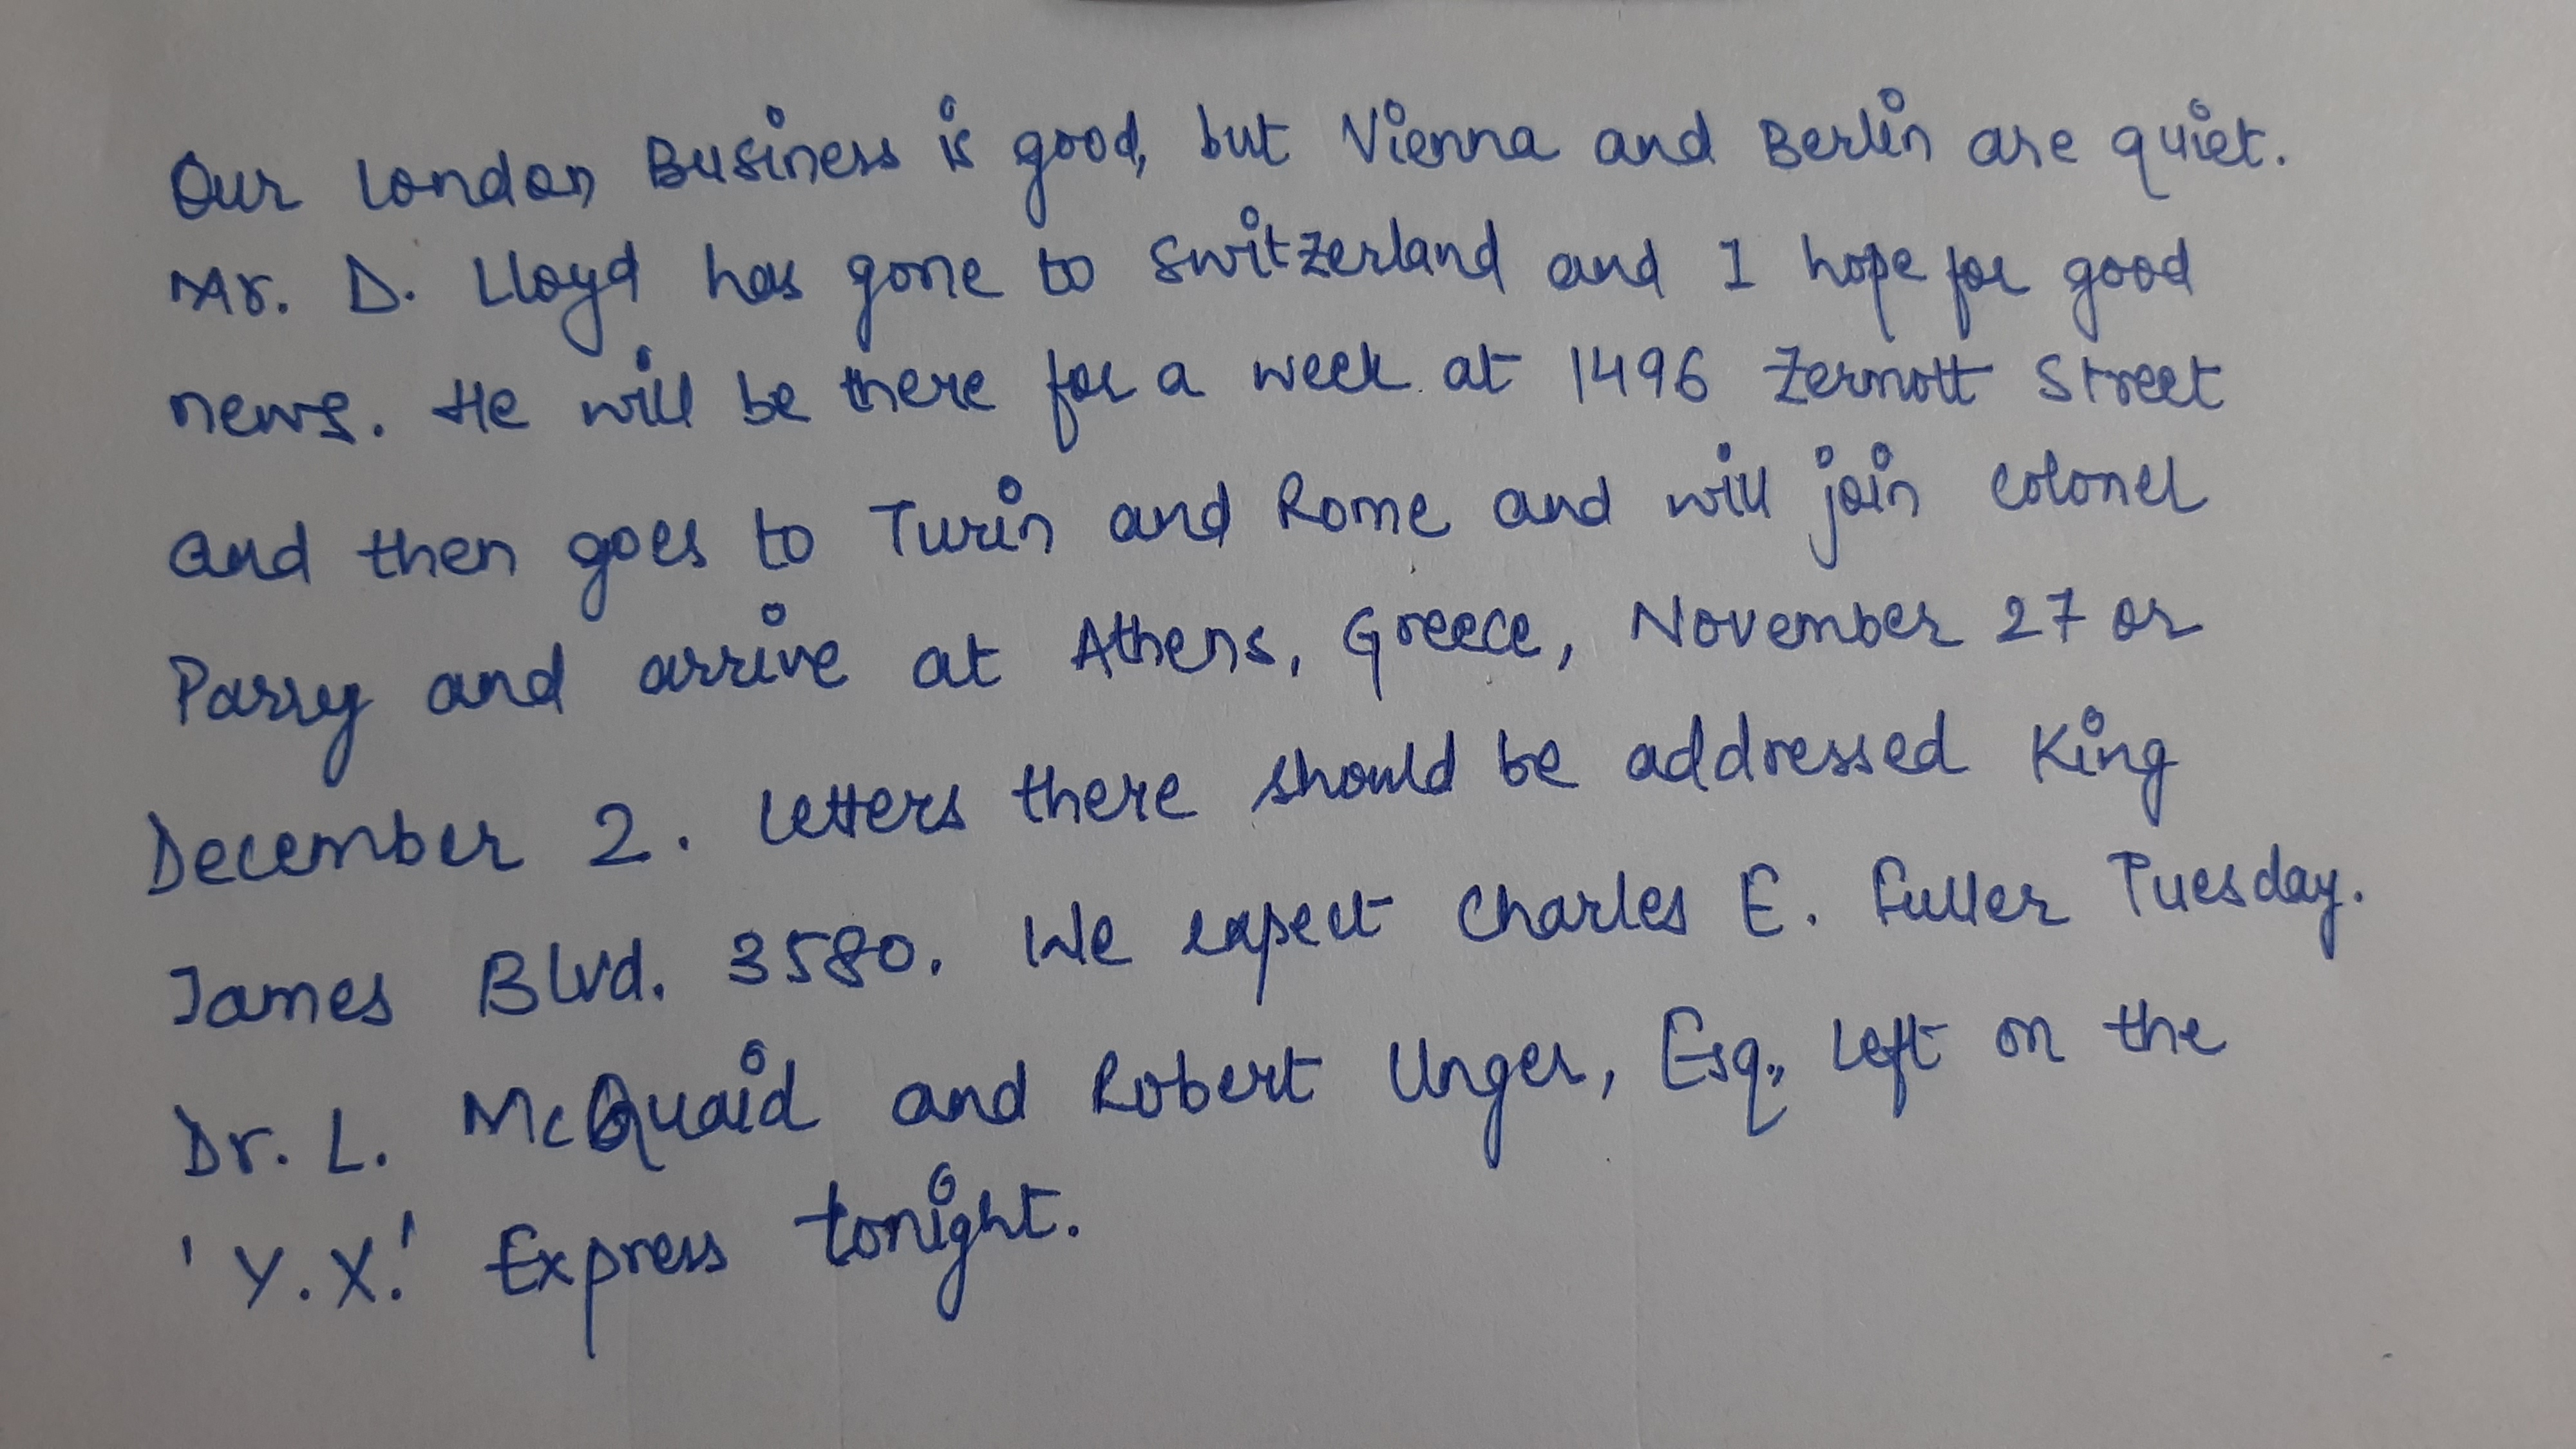 Our London Business is good, but Vienna and Berlin are quiet.
Mr. D. Lloyd has gone to Switzerland and I hope for good
news. He will be there for a week at 1496 Zermott Street
and then goes to Turin and Rome and will join Colonel
Parry and arrive at Athens, Greece, November 27 or
December 2. Letters there should be addressed King
James Blvd. 3580. We expect Charles E. Fuller Tuesday.
Dr. L. McQuaid and Robert Unger, Esq., left on the
'Y.X.' Express tonight.